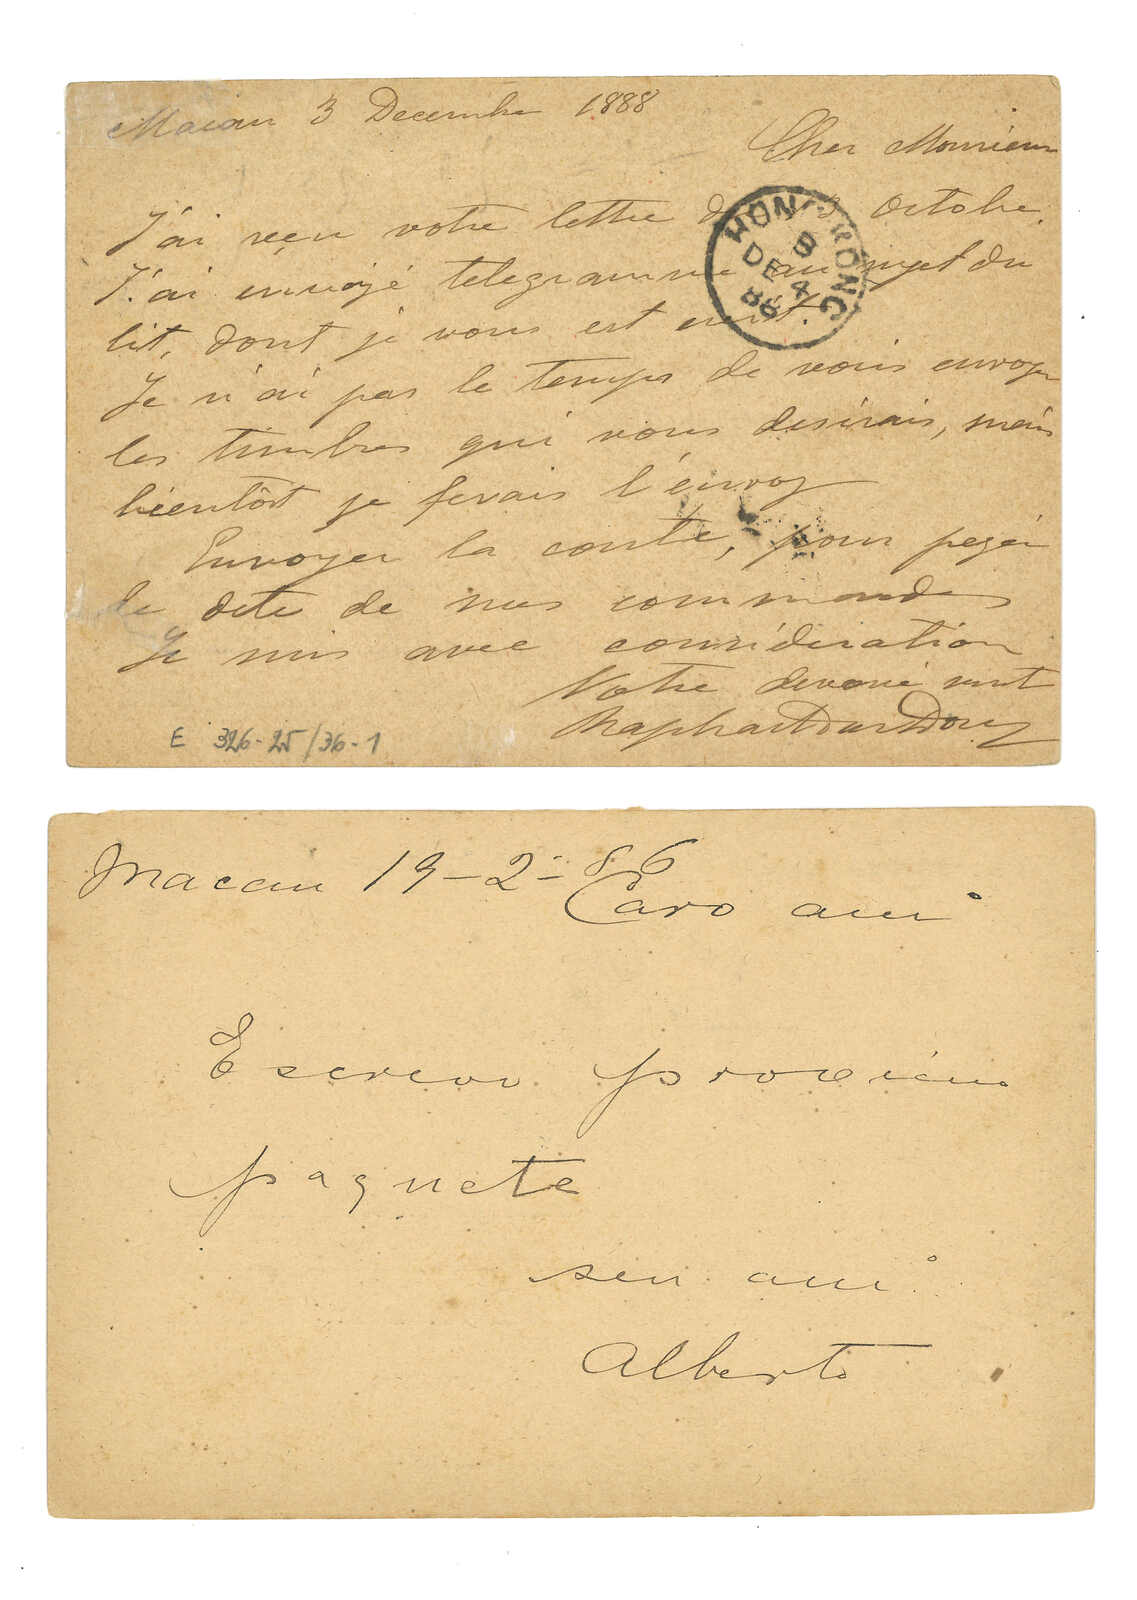 Macau 3 Decembre 1888
Cher Monsieur
J'ai reçu votre lettre d Octobre.
J'ai envoyé telegramme au sujet du
lit, dont je vous est ecrit.
Je n'ai pas le temps de vous envoyer
les timbres qui vous desirais, mais
bientôt je ferais l'envoy
Envoyer la conte, pour
le dete de mes commandes
Je suis avec consideration
Votre devoué
HONG KONG
B
DE 4
88
E 326-25/36-1
Macau 19-2-86
Caro amº
Escrevo proximo
paquete
seu amº
Alberto